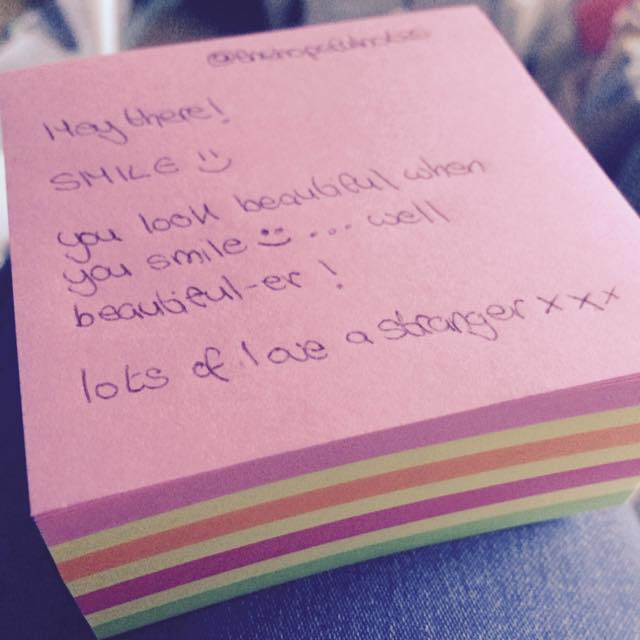 Hey there!
SMILE :)
you look beautiful when
you smile :) ... well
beautiful-er!
lots of love a stranger x x x